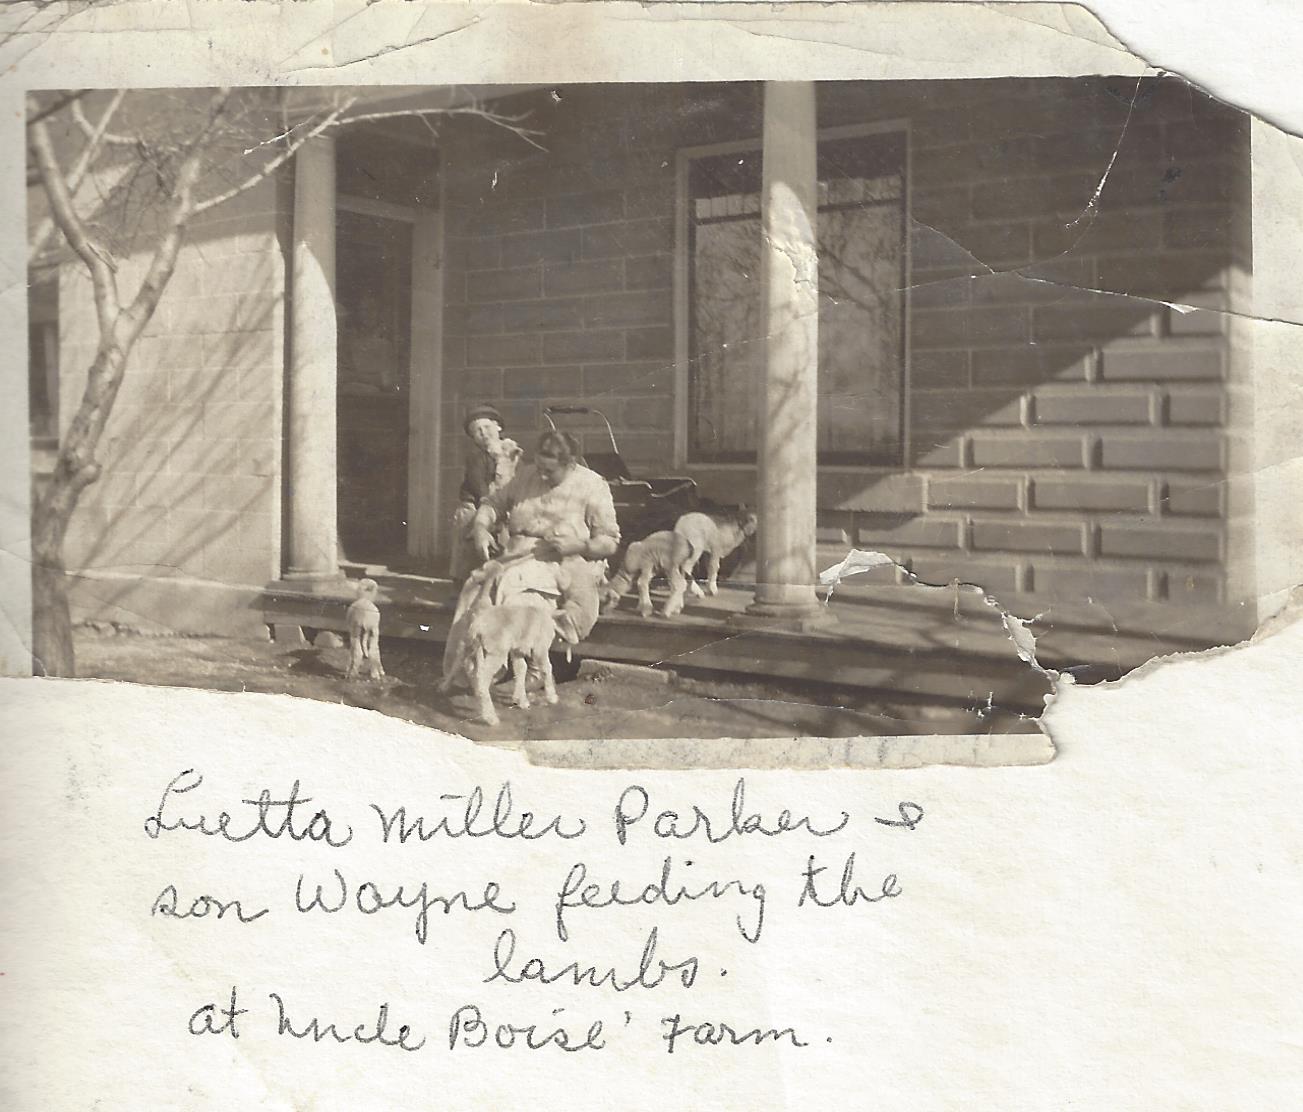 Luetta Miller Parker &
son Wayne feeding the
lambs.
at Uncle Boise' Farm.